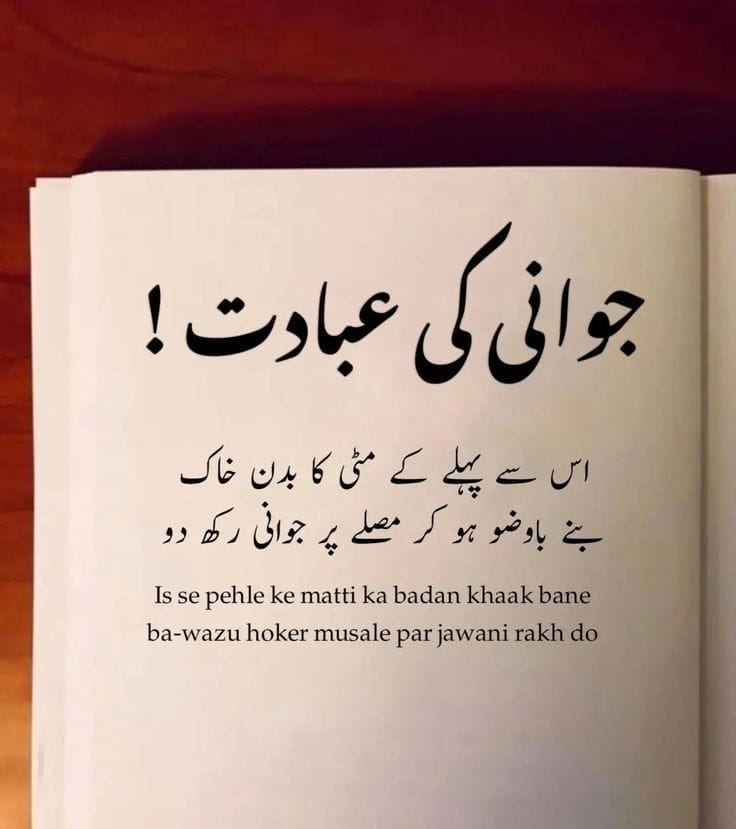 جوانی کی عبادت !
اس سے پہلے کے مٹی کا بدن خاک
بنے باوضو ہو کر مصلے پر جوانی رکھ دو
Is se pehle ke matti ka badan khaak bane
ba-wazu hoker musale par jawani rakh do